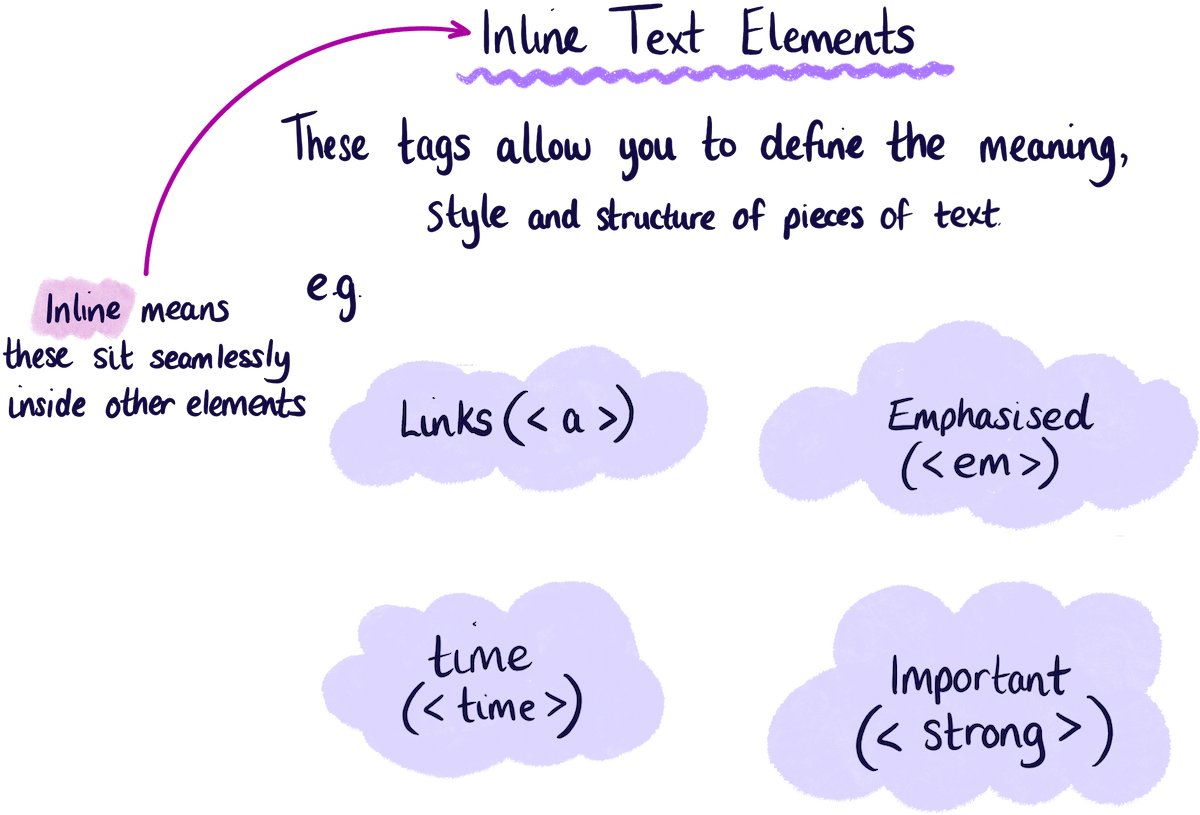 Inline Text Elements
These tags allow you to define the meaning,
style and structure of pieces of text.
Inline means
these sit seamlessly
inside other elements
e.g.
Links (< a >)
Emphasised
(< em >)
time
(< time >)
Important
(< strong >)